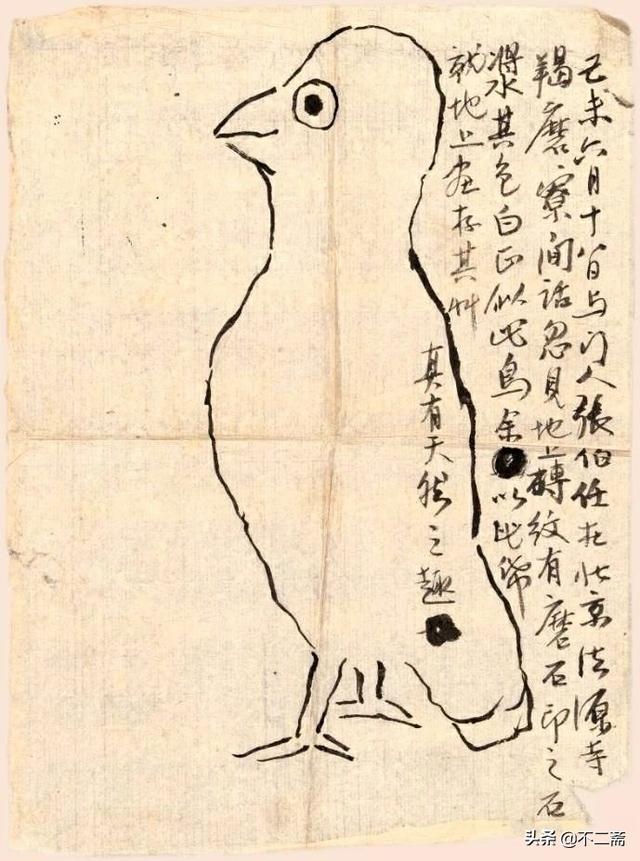 己未六月十八日与门人張伯任在北京法源寺
羯磨寮閒話忽見地上磚紋有磨石印之石
漿水其色白正似此鳥余以此紙
就地上畫存其艸
真有天然之趣
头条 @不二斋